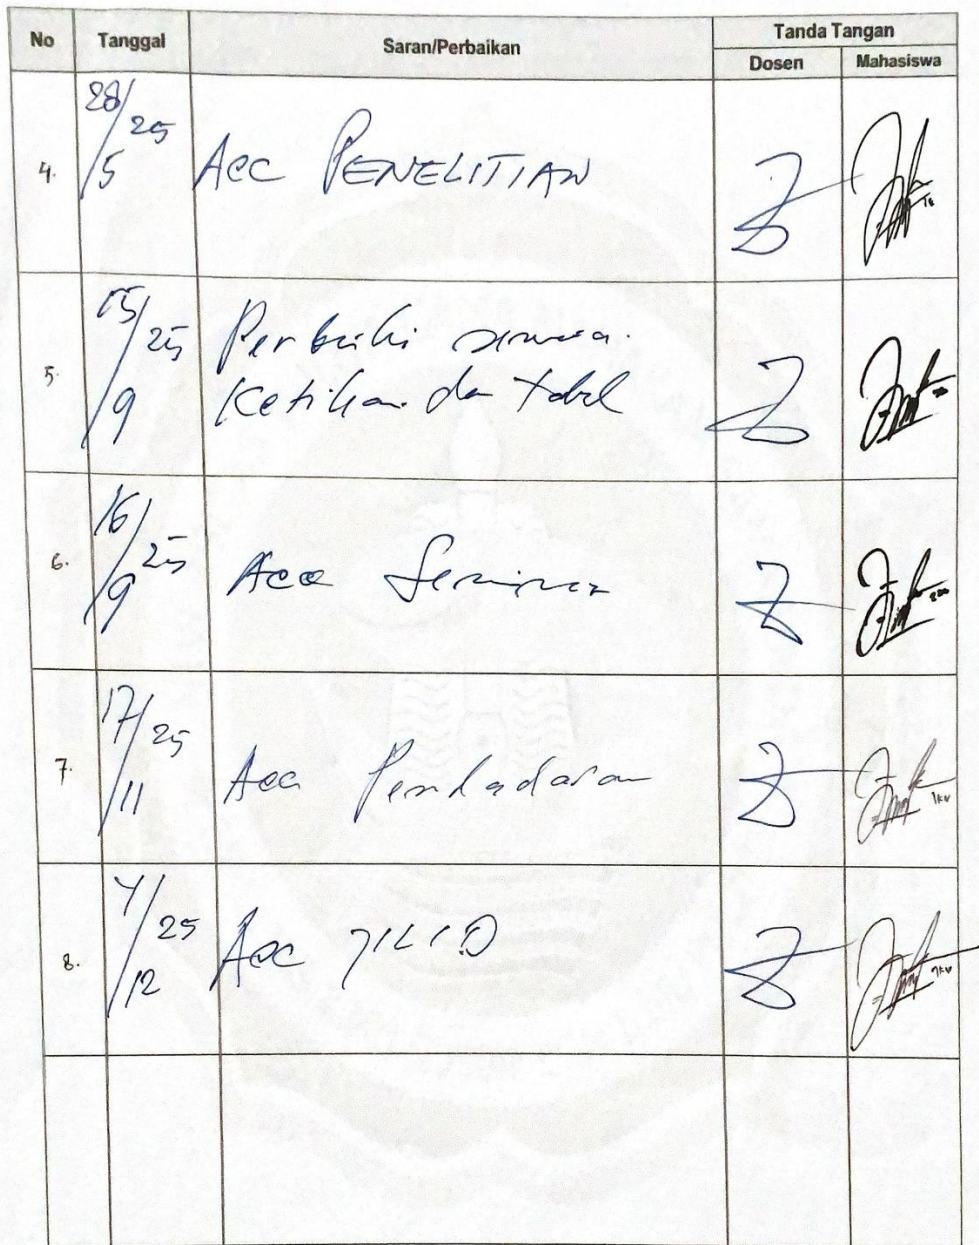 No Tanggal Saran/Perbaikan Tanda Tangan
Dosen Mahasiswa
4. 28/5 25 Acc PENELITIAN
5. 15/9 25 Perbaiki semua
Ketikan dan tabel
6. 16/9 25 Acc Seminar
7. 17/11 25 Acc Pendadaran
8. /12 25 Acc JILID